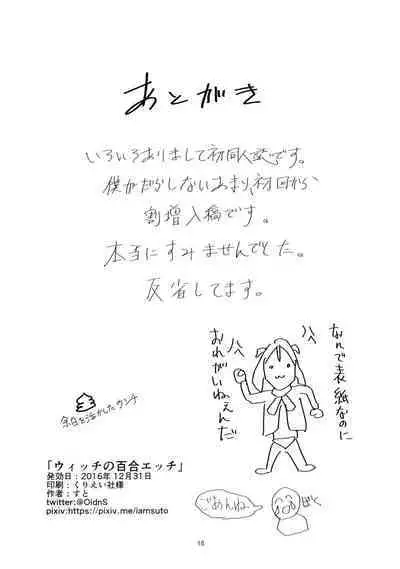 あとがき
いろいろありまして初同人誌です。
僕がだらしないあまり、初回から
割増入稿です。
本当にすみませんでした。
反省してます。
なんで表紙なのに
おれがいねぇんだ
ハヘ
ハヘ
余白を活かしたウンチ
「ウィッチの百合エッチ」
発効日：2016年12月31日
印刷：くりえい社様
作者：すと
twitter:@OidnS
pixiv:https://pixiv.me/iamsuto
ごめんね
ぼく
15